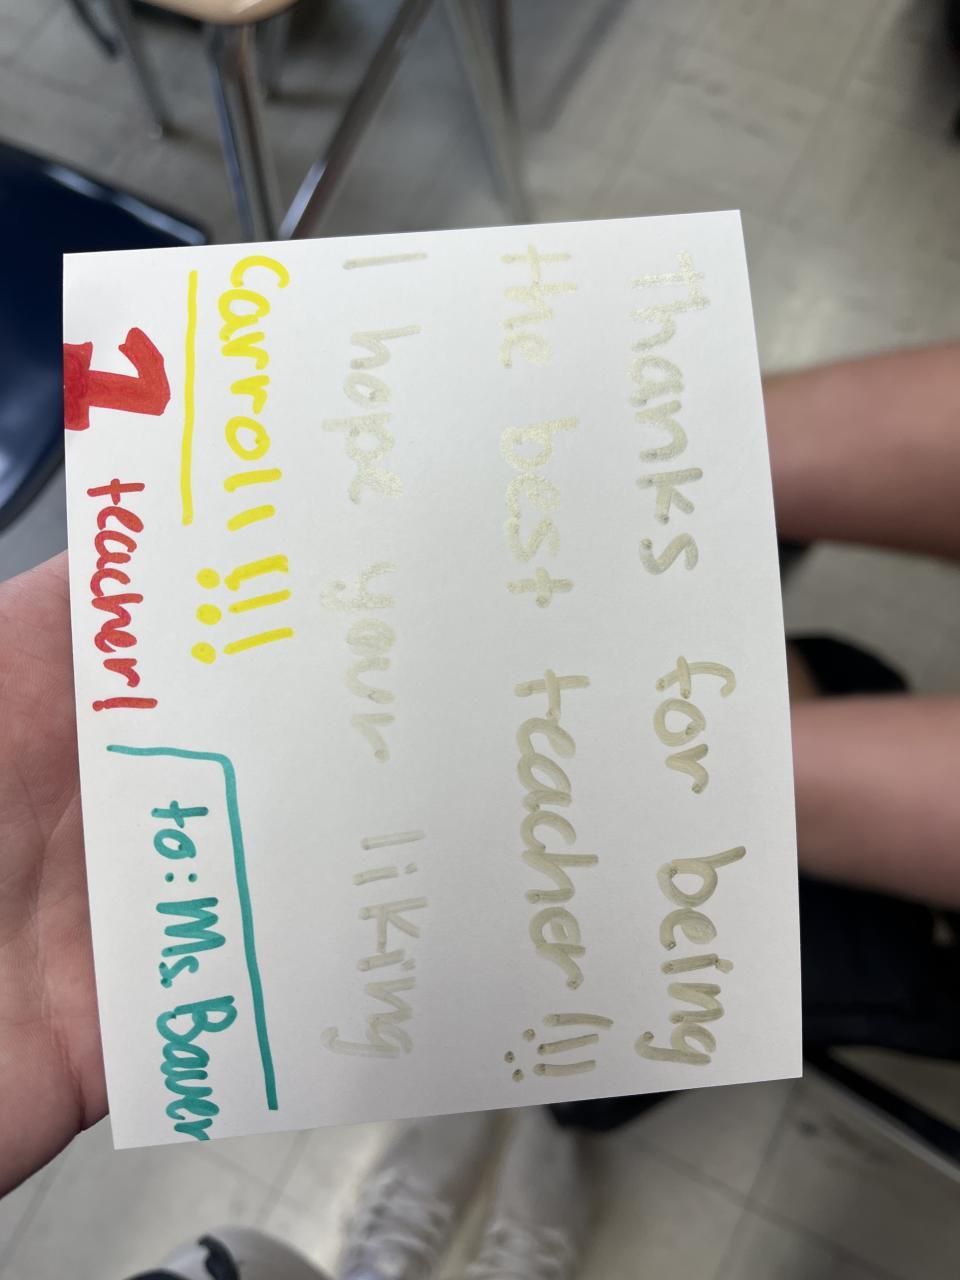 Thanks for being
the best teacher!!!
I hope your liking
Carroll!!!
1 teacher!
to: Ms. Bauer